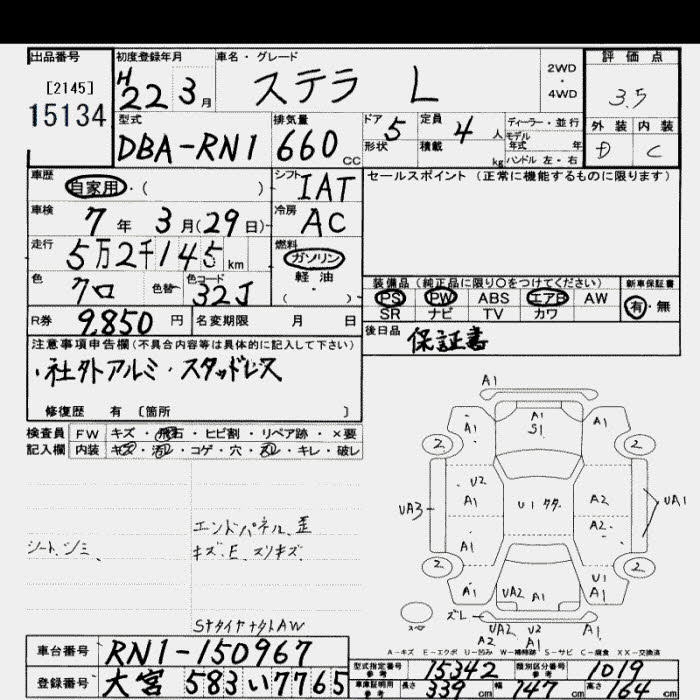 出品番号
[2145]
15134
初度登録年月
H22 3月
車名・グレード
ステラ L
2WD
・
4WD
評価点
3.5
外装 内装
D C
型式
DBA-RN1
排気量
660 CC
ドア 5
形状
定員 4 人
積載 kg
ディーラー・並行
モデル年式 年
ハンドル 左・右
車歴
自家用・( )
シフト
IAT
セールスポイント (正常に機能するものに限ります)
車検
7年 3月(29日)
冷房
AC
走行
5万2千145 km
燃料
ガソリン
軽・油
( ・ )
色
クロ
色替
色コード
32J
装備品 (純正品に限り○をつけてください)
PS PW ABS エアB AW
SR ナビ TV カワ
新車保証書
有・無
R券
9,850 円
名変期限 月 日
後日品
保証書
注意事項申告欄(不具合内容等は具体的に記入して下さい)
・社外アルミ・スタッドレス
修復歴 有 〔箇所 〕
検査員
記入欄
FW キズ・飛石・ヒビ割・リペア跡・×要
内装 キズ・汚レ・コゲ・穴・スレ・キレ・破レ
シート、シミ
エンドパネル、歪
キズ、E、スリキズ
A1
A1
S1
A1
A1
2
2
U2
A1
UA3
U1 タタ
A2
A2
UA1
A1
2
2
A1
UA2 A1
U1
A1
スペア
ズレ
UA2 U2 A1
A2 A1
A-キズ E-エクボ U-凹み W-補修跡 S-サビ C-腐食 XX-交換済
車台番号
RN1-150967
登録番号
大宮 583 い 7765
型式指定番号 参考
15342
類別区分番号 参考
1019
車庫証明用 参考
長さ 339 cm 幅 147 cm 高さ 164 cm